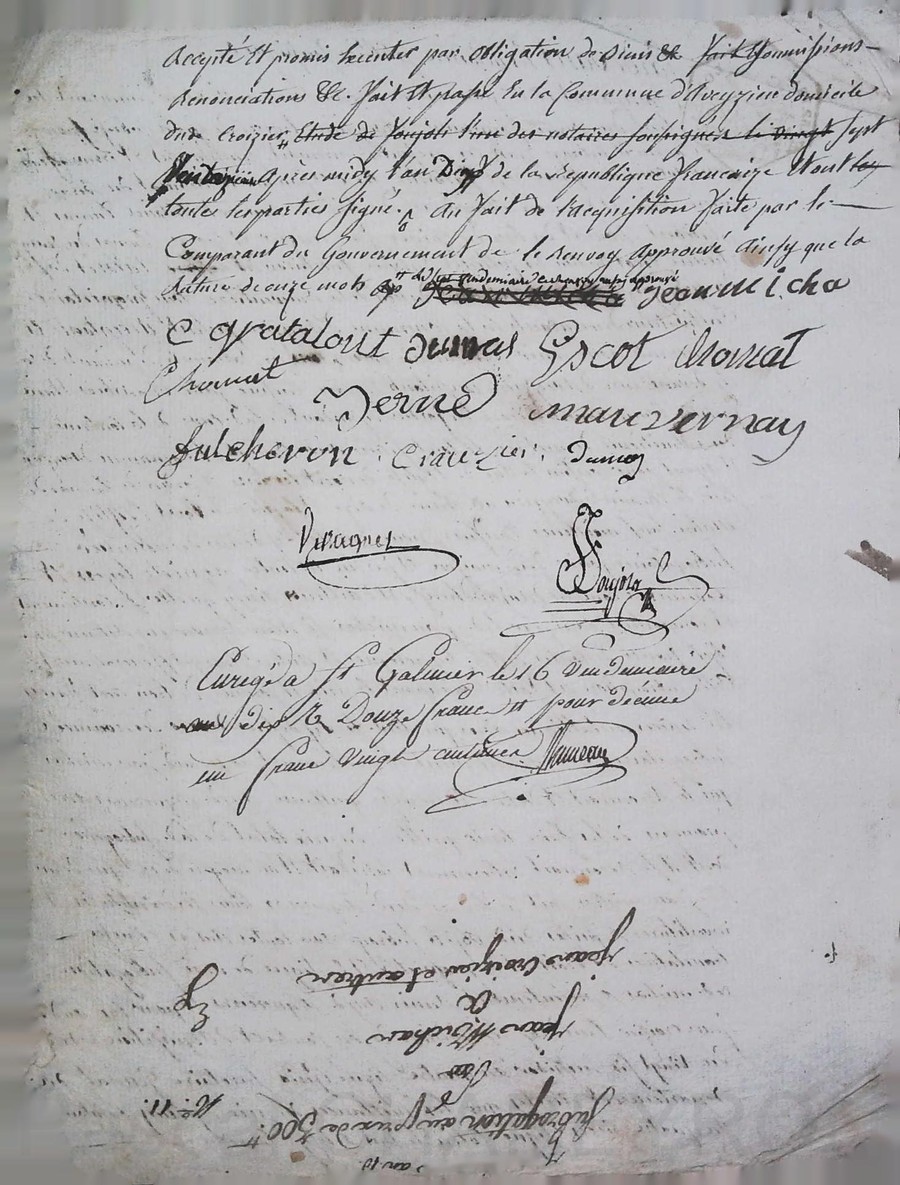 accepté et promis executer par obligation de biens &c fait soumissions
renonciations &c. fait et passé en la Commune d'Aveyzine domicile
dud. croizier, Etude de Poujols l'un des notaires soussignés le vingt sept
Vendemiaire apres midy l'an Dix de la republique francaize et ont les
toutes les parties signé. du fait de l'acquisition faite par le
Comparant du Gouvernement de le renvoy approuvé ainsy que la
rature de onze mots
sept vendemiaire approuvé
jean micha
gratalout dumas Escot chomat
Chomat
verne mauvernay
fulcheron crauzier dumas
Poujols
Enregé a St Galmier le 16 Vendemiaire
an dix R Douze francs et pour decime
un franc vingt centimes
jean Croizier et autres
a
jean Michan
Par
Subrogation au prix de 500.tt
No. 11.
an 10